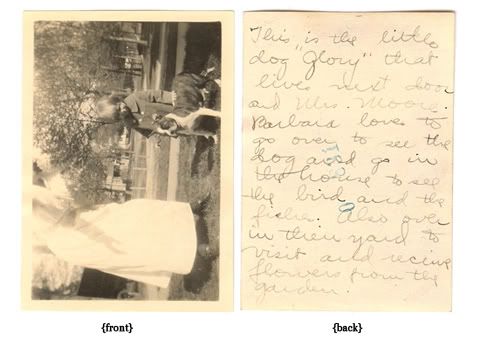 This is the little
dog "Glory" that
lives next door
and Mrs. Moore.
Barbara loves to
go over to see the
dog and go in
the house to see
the bird and the
fishe. Also over
in their yard to
visit and
flowers from the
garden.
{front}
{back}